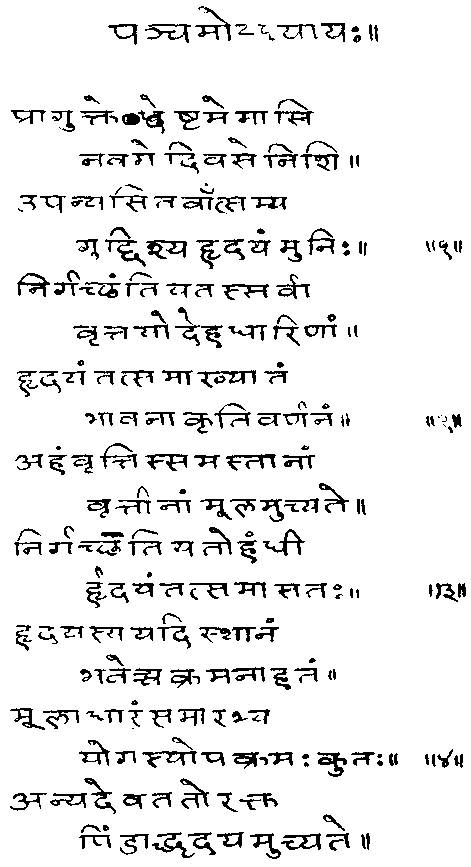 पञ्चमोऽध्यायः॥
प्रागुक्ते ष्टमे मासि
नवमे दिवसे निशि॥
उपन्यसितवाँत्सम्य
गुद्दिश्य हृदयं मुनिः॥ ॥१॥
निर्गच्छंति यतस्सर्वा
वृत्तयो देहधारिणां॥
हृदयं तत्समाख्यातं
भावनाकृतिवर्णनं॥ ॥२॥
अहंवृत्तिस्समस्तानां
वृत्तीनां मूलमुच्यते॥
निर्गच्छति यतोहंधी
र्हृदयं तत्समासतः॥ ॥३॥
हृदयस्य यदि स्थानं
भवेच्चक्रमनाहतं॥
मूलाधारं समारभ्य
योगस्योपक्रमः कुतः॥ ॥४॥
अन्यदेव ततो रक्त
पिंडाद्धृदयमुच्यते॥